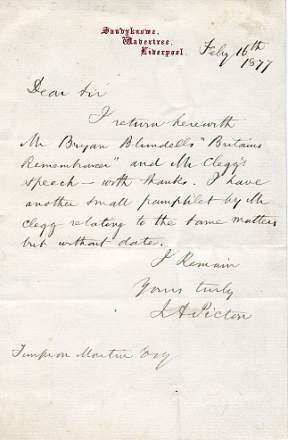 Sandyknowe,
Wavertree,
Liverpool.
Feby 16th
1877
Dear Sir
I return herewith
Mr Bryan Blundells "Britains
Remembrancer" and Mr Clegg's
Speech — with thanks. I have
another small pamphlet by Mr
Clegg relating to the same matters
but without date.
I Remain
Yours truly
J A Picton
Timpron Martin Esq